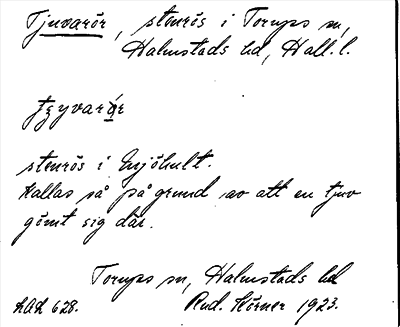 Tjuvarör, stenrös i Torups sn,
Halmstads hd, Hall. l.
stenrös i Ensjöhult.
Kallas så på grund av att en tjuv
gömt sig där.
Torups sn, Halmstads hd
Rud. Körner 1923.